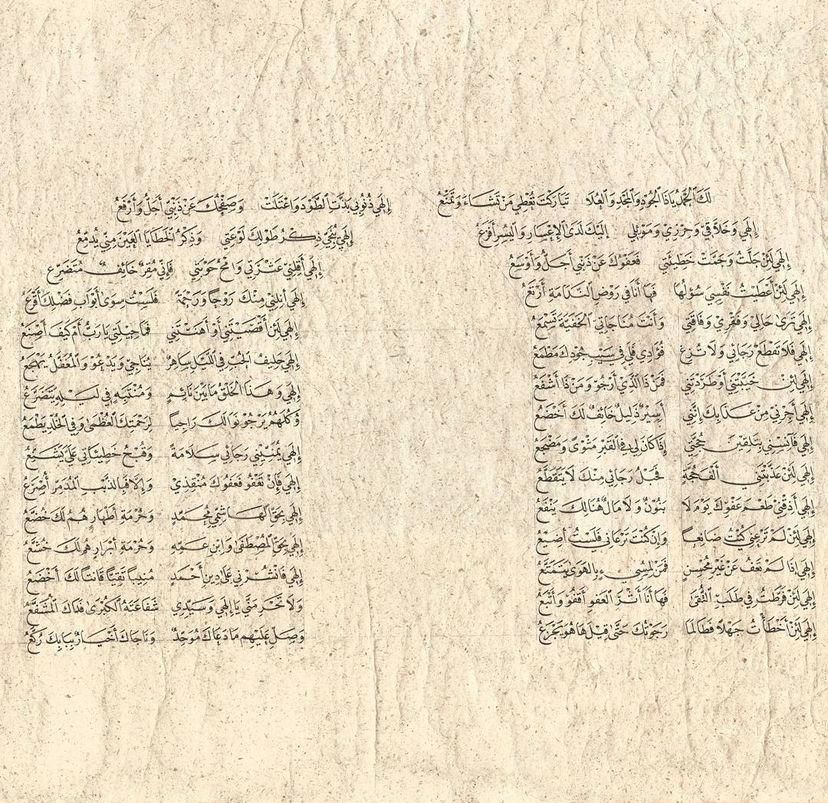 لَكَ ٱلْحَمْدُ يَاذَا ٱلْجُودِ وَٱلْمَجْدِ وَٱلْعُلَا تَبَارَكْتَ تُعْطِي مَنْ تَشَاءُ وَتَمْنَعُ
إِلٰهِي وَخَلَّاقِي وَحِرْزِي وَمَوْئِلِي إِلَيْكَ لَدَى ٱلْإِعْسَارِ وَٱلْيُسْرِ أَفْزَعُ
إِلٰهِي لَئِنْ جَلَّتْ وَجَمَّتْ خَطِيئَتِي فَعَفْوُكَ عَنْ ذَنْبِي أَجَلُّ وَأَوْسَعُ
إِلٰهِي لَئِنْ أَعْطَيْتُ نَفْسِي سُؤْلَهَا فَهَا أَنَا فِي رَوْضِ ٱلنَّدَامَةِ أَرْتَعُ
إِلٰهِي تَرَى حَالِي وَفَقْرِي وَفَاقَتِي وَأَنْتَ مُنَاجَاتِي ٱلْخَفِيَّةَ تَسْمَعُ
إِلٰهِي فَلَا تَقْطَعْ رَجَائِي وَلَا تُزِغْ فُؤَادِي فَلِي فِي سَيْبِ جُودِكَ مَطْمَعُ
إِلٰهِي لَئِنْ خَيَّبْتَنِي أَوْ طَرَدْتَنِي فَمَنْ ذَا ٱلَّذِي أَرْجُو وَمَنْ ذَا أُشَفِّعُ
إِلٰهِي أَجِرْنِي مِنْ عَذَابِكَ إِنَّنِي أَسِيرٌ ذَلِيلٌ خَائِفٌ لَكَ أَخْضَعُ
إِلٰهِي فَآنِسْنِي بِتَلْقِينِ حُجَّتِي إِذَا كَانَ لِي فِي ٱلْقَبْرِ مَثْوًى وَمَضْجَعُ
إِلٰهِي لَئِنْ عَذَّبْتَنِي أَلْفَ حِجَّةٍ فَحَبْلُ رَجَائِي مِنْكَ لَا يَتَقَطَّعُ
إِلٰهِي أَذِقْنِي طَعْمَ عَفْوِكَ يَوْمَ لَا بَنُونٌ وَلَا مَالٌ هُنَالِكَ يَنْفَعُ
إِلٰهِي لَئِنْ لَمْ تَرْعَنِي كُنْتُ ضَائِعًا وَإِنْ كُنْتَ تَرْعَانِي فَلَسْتُ أُضَيَّعُ
إِلٰهِي إِذَا لَمْ تَعْفُ عَنْ غَيْرِ مُحْسِنٍ فَمَنْ لِمُسِيءٍ بِالْهَوَى يَتَمَتَّعُ
إِلٰهِي لَئِنْ فَرَّطْتُ فِي طَلَبِ ٱلتُّقَى فَهَا أَنَا أَثْرَ ٱلْعَفْوِ أَقْفُو وَأَتْبَعُ
إِلٰهِي لَئِنْ أَخْطَأْتُ جَهْلًا فَطَالَمَا رَجَوْتُكَ حَتَّى قِيلَ هَا هُوَ يَجْزَعُ
إِلٰهِي ذُنُوبِي بَذَّتِ ٱلطَّوْدَ وَٱعْتَلَتْ وَصَفْحُكَ عَنْ ذَنْبِي أَجَلُّ وَأَرْفَعُ
إِلٰهِي يُنَجِّي ذِكْرُ طَوْلِكَ لَوْعَتِي وَذِكْرُ ٱلْخَطَايَا ٱلْعَيْنَ مِنِّي يُدَمِّعُ
إِلٰهِي أَقِلْنِي عَثْرَتِي وَٱمْحُ حَوْبَتِي فَإِنِّي مُقِرٌّ خَائِفٌ مُتَضَرِّعُ
إِلٰهِي أَنِلْنِي مِنْكَ رَوْحًا وَرَحْمَةً فَلَسْتُ سِوَى أَبْوَابِ فَضْلِكَ أَقْرَعُ
إِلٰهِي لَئِنْ أَقْصَيْتَنِي أَوْ أَهَنْتَنِي فَمَا حِيلَتِي يَا رَبِّ أَمْ كَيْفَ أَصْنَعُ
إِلٰهِي حَلِيفُ ٱلْحُبِّ فِي ٱللَّيْلِ سَاهِرٌ يُنَاجِي وَيَدْعُو وَٱلْمُغَفَّلُ يَهْجَعُ
إِلٰهِي وَهٰذَا ٱلْخَلْقُ مَا بَيْنَ نَائِمٍ وَمُنْتَبِهٍ فِي لَيْلِهِ يَتَضَرَّعُ
وَكُلُّهُمْ يَرْجُو نَوَالَكَ رَاجِيًا لِرَحْمَتِكَ ٱلْعُظْمَى وَفِي ٱلْخُلْدِ يَطْمَعُ
إِلٰهِي يُمَنِّينِي رَجَائِي سَلَامَةً وَقُبْحُ خَطِيئَاتِي عَلَيَّ يُشَنِّعُ
إِلٰهِي فَإِنْ تَعْفُو فَعَفْوُكَ مُنْقِذِي وَإِلَّا فَبِالذَّنْبِ ٱلْمُدَمِّرِ أُصْرَعُ
إِلٰهِي بِحَقِّ ٱلْهَاشِمِيِّ مُحَمَّدٍ وَحُرْمَةِ أَطْهَارٍ هُمُ لَكَ خُضَّعُ
إِلٰهِي بِحَقِّ ٱلْمُصْطَفَى وَٱبْنِ عَمِّهِ وَحُرْمَةِ أَبْرَارٍ هُمُ لَكَ خُشَّعُ
إِلٰهِي فَٱنْشُرْنِي عَلَى دِينِ أَحْمَدٍ مُنِيبًا تَقِيًّا قَانِتًا لَكَ أَخْضَعُ
وَلَا تَحْرِمَنِّي يَا إِلٰهِي وَسَيِّدِي شَفَاعَتَهُ ٱلْكُبْرَى فَذَاكَ ٱلْمُشَفَّعُ
وَصَلِّ عَلَيْهِمْ مَا دَعَاكَ مُوَحِّدٌ وَنَاجَاكَ أَخْيَارٌ بِبَابِكَ رُكَّعُ